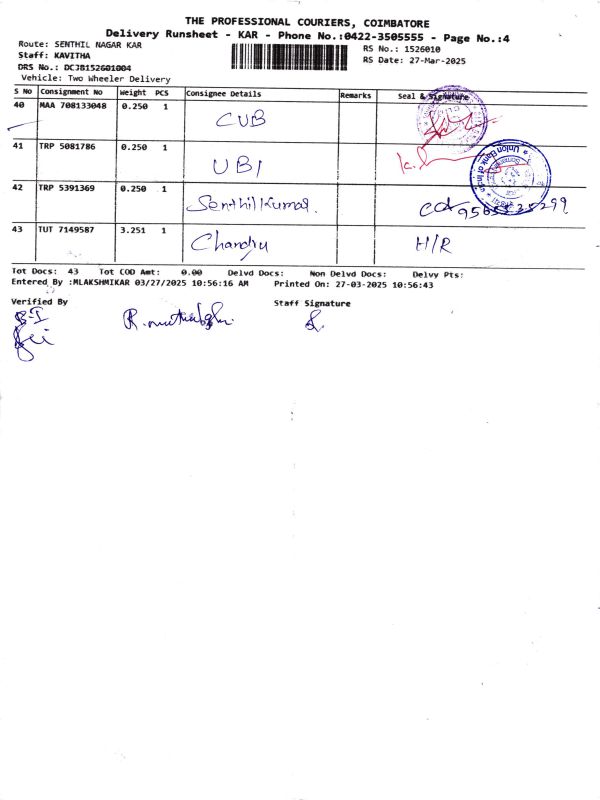 THE PROFESSIONAL COURIERS, COIMBATORE
Delivery Runsheet - KAR - Phone No.:0422-3505555 - Page No.:4
Route: SENTHIL NAGAR KAR
Staff: KAVITHA
DRS No.: DCJB152601004
Vehicle: Two Wheeler Delivery
RS No.: 1526010
RS Date: 27-Mar-2025
S No Consignment No Weight PCS Consignee Details Remarks Seal & Signature
40 MAA 708133048 0.250 1 CUB
41 TRP 5081786 0.250 1 UBI
Union Bank of India
42 TRP 5391369 0.250 1 Senthil Kumar.
43 TUT 7149587 3.251 1 Chandru H/R
Tot Docs: 43 Tot COD Amt: 0.00 Delvd Docs: Non Delvd Docs: Delvy Pts:
Entered By :MLAKSHMIKAR 03/27/2025 10:56:16 AM Printed On: 27-03-2025 10:56:43
Verified By Staff Signature